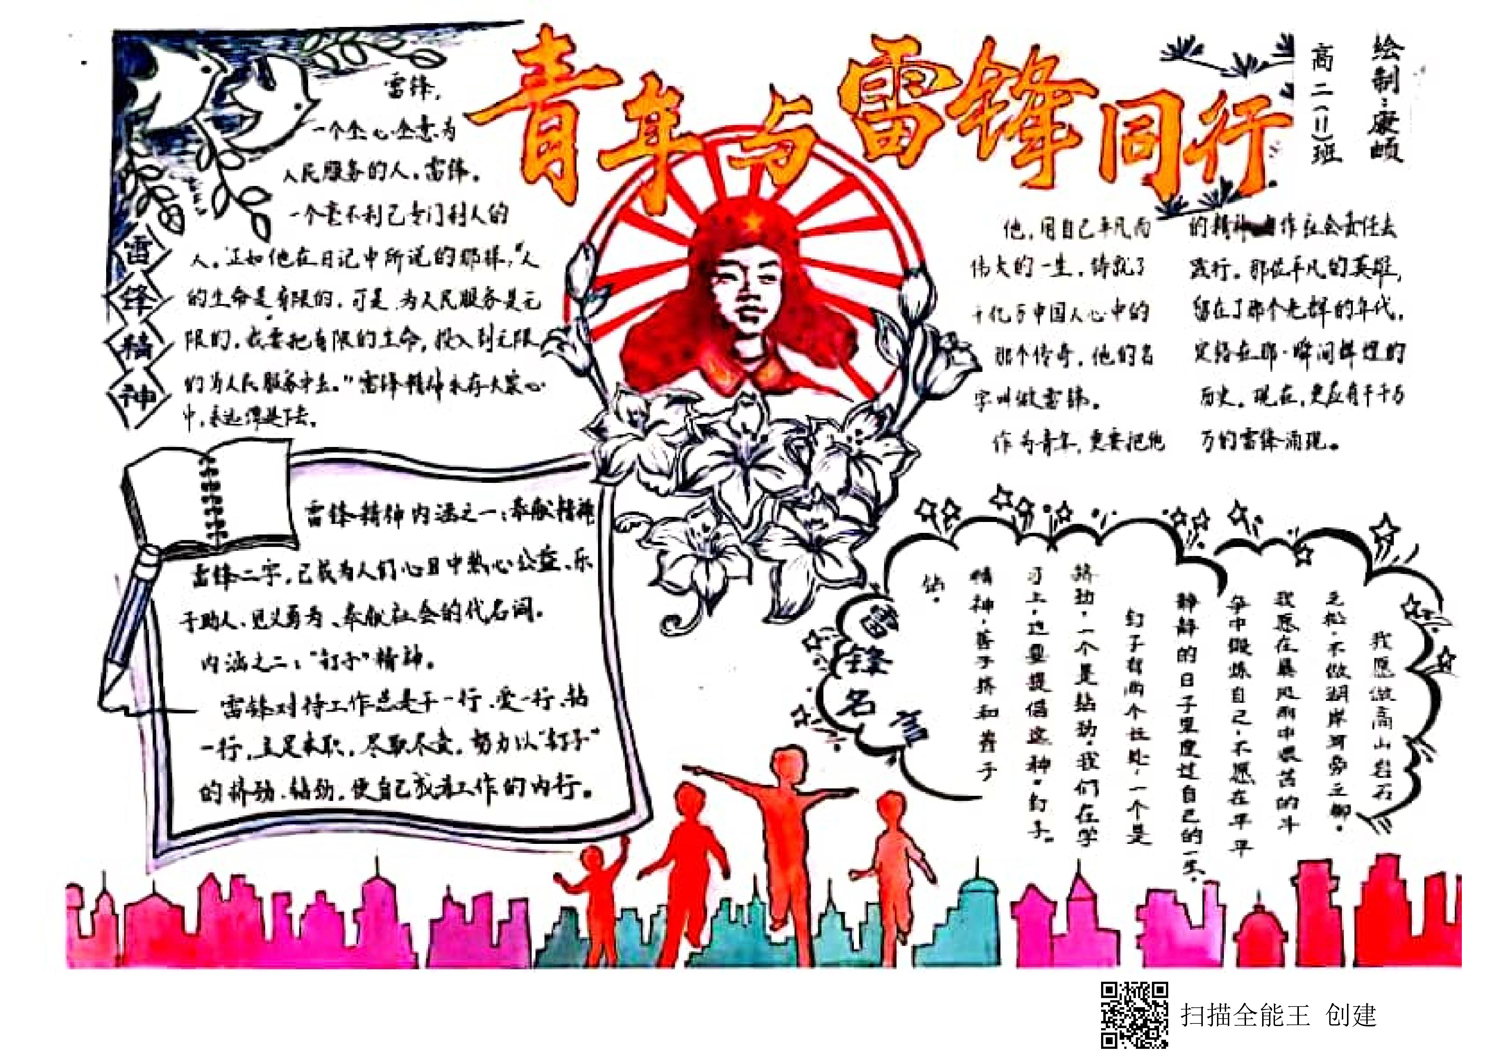 青年与雷锋同行
绘制:康頔
高二(11)班
雷锋精神
雷锋,
一个全心全意为
人民服务的人。雷锋。
一个毫不利己专门利人的
人。正如他在日记中所说的那样,“人
的生命是有限的,可是为人民服务是无
限的,我要把有限的生命,投入到无限
的为人民服务中去。”雷锋精神永存大家心
中,永远传递下去。
他,用自己平凡而
伟大的一生,铸就了
千亿万中国人心中的
那个传奇,他的名
字叫做雷锋。
作为青年,更要把他
的精神当作社会责任去
践行。那位平凡的英雄,
留在了那个光辉的年代,
定格在那一瞬间辉煌的
历史。现在,更应有千千万
万的雷锋涌现。
雷锋精神内涵之一:奉献精神
雷锋二字,已成为人们心目中热心公益、乐
于助人、见义勇为、奉献社会的代名词。
内涵之二:“钉子”精神。
雷锋对待工作总是干一行、爱一行、钻
一行,立足本职,尽职尽责,努力以“钉子”
的挤劲、钻劲,使自己成为工作的内行。
雷锋名言
我愿做高山岩石
之松,不做湖岸河旁之柳。
我愿在暴风雨中艰苦的斗
争中锻炼自己,不愿在平平
静静的日子里度过自己的一生。
钉子有两个长处,一个是
挤劲,一个是钻劲,我们在学
习上,也要提倡这种“钉子”
精神,善于挤和善于
钻。
扫描全能王 创建